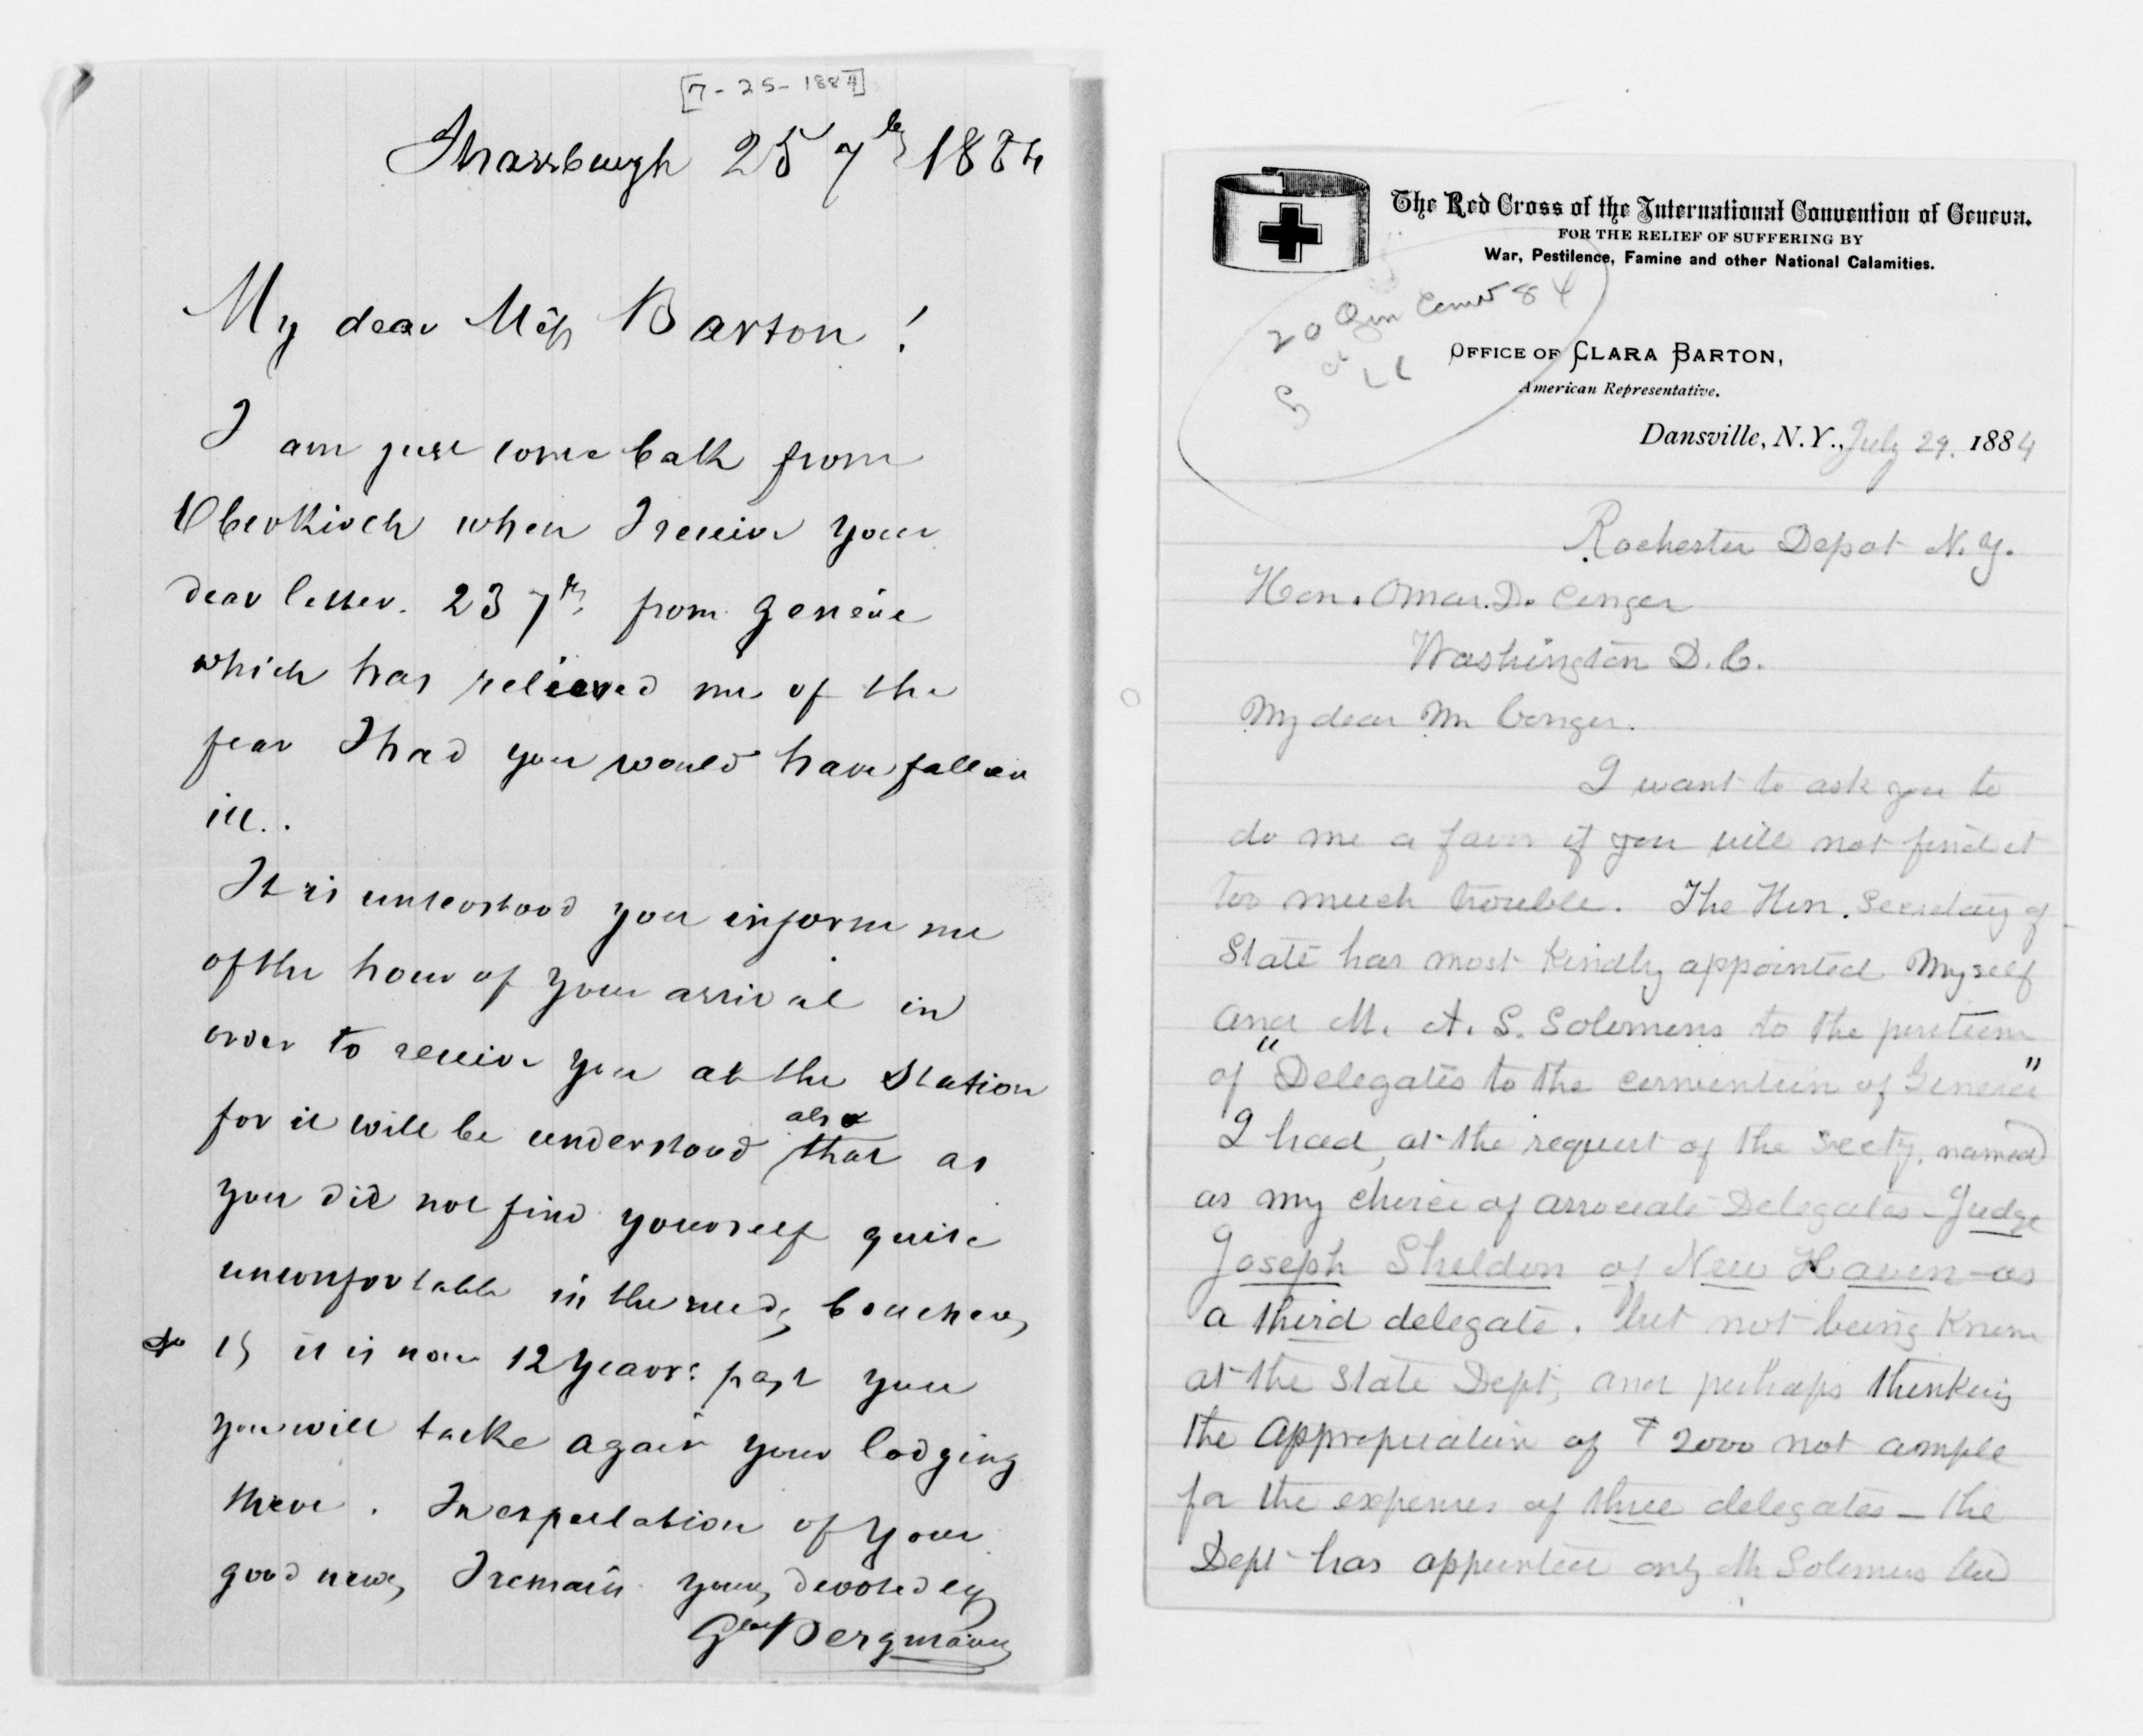 [7-25-1884]
Strassburgh 25 7br 1884
My dear Miss Barton!
I am just come bakk from
Oberkirch when I receive your
dear letter. 23 7br from Genève
which has relieved me of the
fear I had you would have fallen
ill..
It is understood you inform me
of the hour of your arrival in
order to receive you at the station
for it will be understood also that as
you did not find yourself quite
unconfortable in the
15 it is now 12 Years past you
you will tacke again your lodging
there. In expectation of your
good news, I remain yours devotedly
Bergmann
The Red Cross of the International Convention of Geneva.
FOR THE RELIEF OF SUFFERING BY
War, Pestilence, Famine and other National Calamities.
20 Gen 84
OFFICE OF CLARA BARTON,
American Representative.
Dansville, N.Y., July 29. 1884
Rochester Depot N.Y.
Hon. Omar. D. Conger
Washington D.C.
My dear Mr Conger.
I want to ask you to
do me a favor if you will not find it
too much trouble. The Hon. Secretary of
State has most kindly appointed Myself
and M. A. S. Solomons to the position
of "Delegates to the convention of Geneva"
I had, at the request of the Secty. named
as my choice of associate Delegates - Judge
Joseph Sheldon of New Haven - as
a third delegate. but not being known
at the State Dept, and perhaps thinking
the appropriation of $2000 not ample
for the expenses of three delegates - the
Dept has appointed only Mr Solomons and